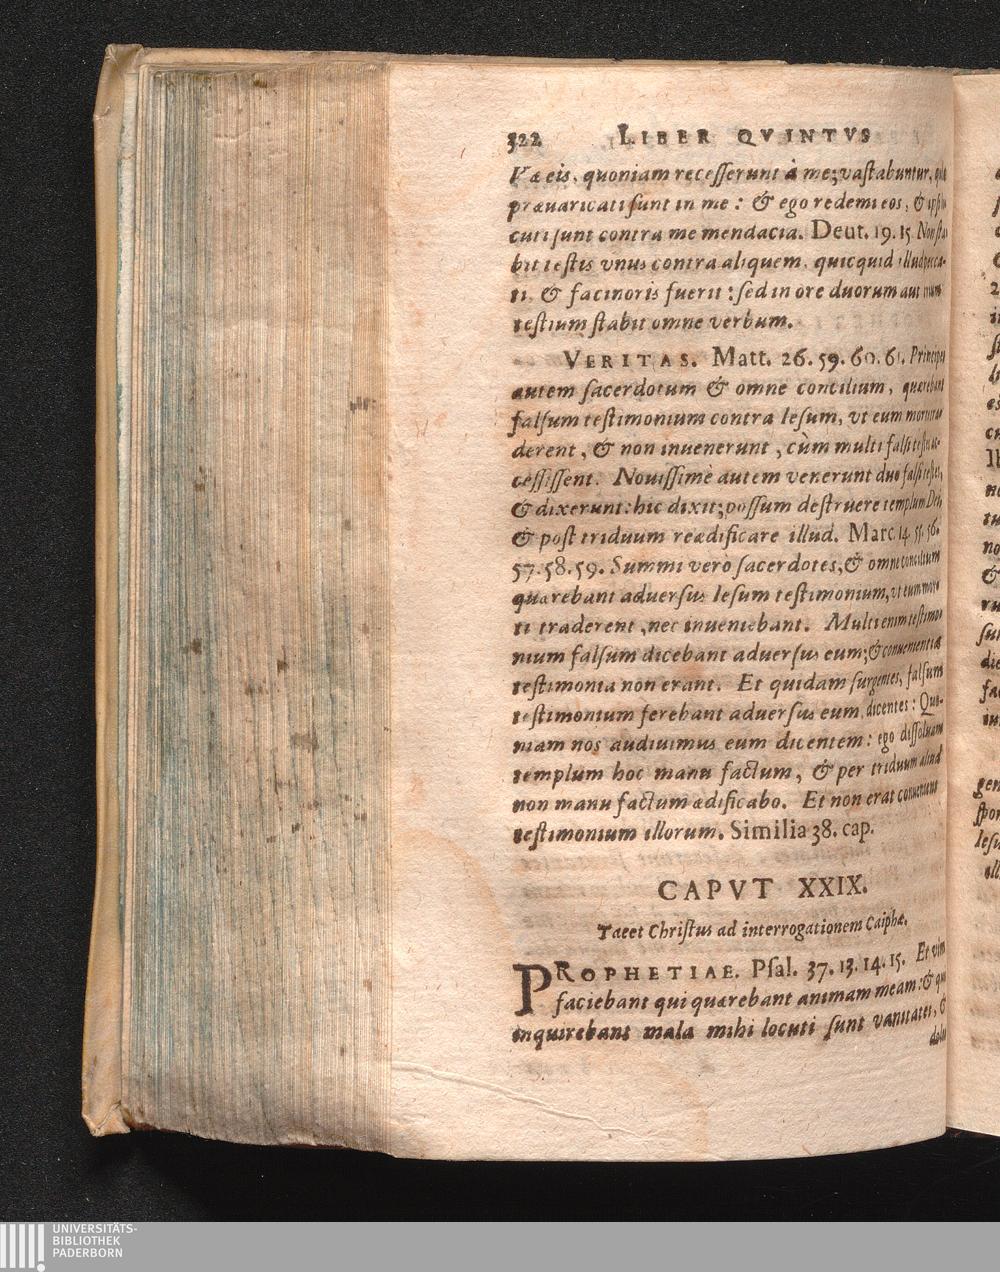 322 LIBER QVINTVS
Væ eis, quoniam recesserunt à me; vastabuntur, quia
præuaricati sunt in me: & ego redemi eos, & ipsi lo-
cuti sunt contra me mendacia. Deut. 19. 15. Non sta-
bit testis vnus contra aliquem, quicquid illud pecca-
ti, & facinoris fuerit: sed in ore duorum aut trium
testium stabit omne verbum.
VERITAS. Matt. 26. 59. 60. 61. Principes
autem sacerdotum & omne concilium, quærebant
falsum testimonium contra Iesum, vt eum morti tra-
derent, & non inuenerunt, cùm multi falsi testes ac-
cessissent. Nouissimè autem venerunt duo falsi testes,
& dixerunt: hic dixit; possum destruere templum Dei,
& post triduum reædificare illud. Marc 14. 55. 56.
57. 58. 59. Summi verò sacerdotes, & omne concilium
quærebant aduersus Iesum testimonium, vt eum mor-
ti traderent, nec inueniebant. Multi enim testimo-
nium falsum dicebant aduersus eum; & conuenientia
testimonia non erant. Et quidam surgentes, falsum
testimonium ferebant aduersus eum, dicentes: Quo-
niam nos audiuimus eum dicentem: ego dissoluam
templum hoc manu factum, & per triduum aliud
non manu factum ædificabo. Et non erat conueniens
testimonium illorum. Similia 38. cap.
CAPVT XXIX.
Tacet Christus ad interrogationem Caiphæ.
PROPHETIAE. Psal. 37. 13. 14. 15. Et vim
faciebant qui quærebant animam meam: & qui
inquirebant mala mihi locuti sunt vanitates, &
dolos
UNIVERSITÄTS-
BIBLIOTHEK
PADERBORN